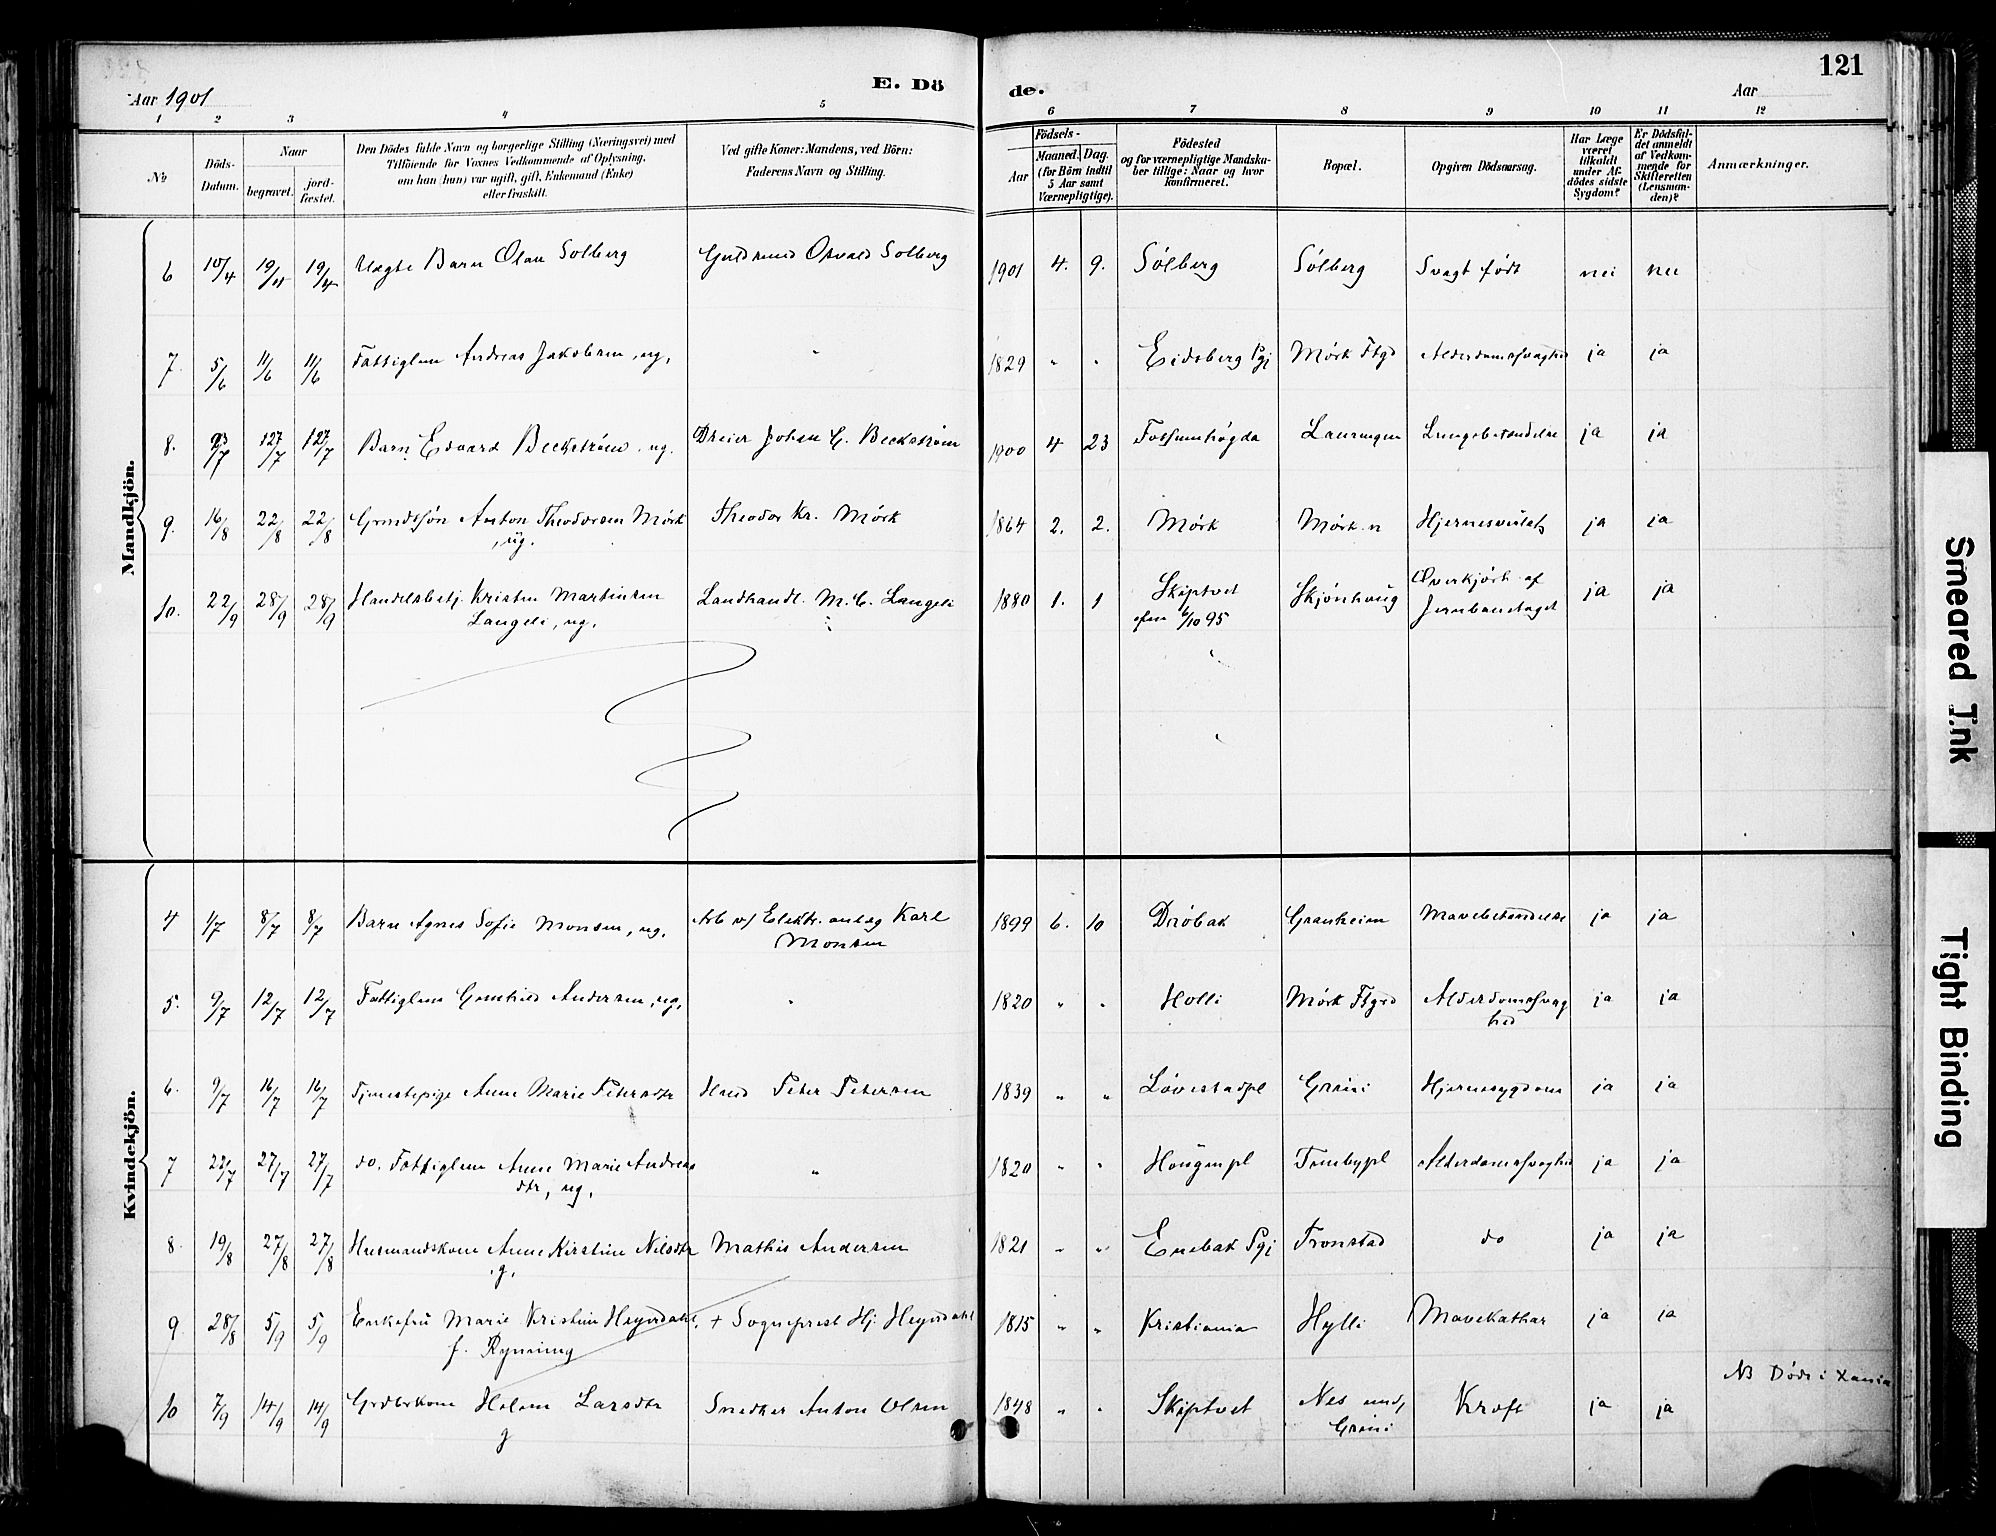 121
Aar 1901
E. Dö
de.
Aar
1 2 3 4 5 6 7 8 9 10 11 12
No
Döds-
Datum.
Naar
begravet.
jord-
fæstet.
Den Dödes fulde Navn og borgerlige Stilling (Næringsvei) med
Tilföiende for Voxnes Vedkommende af Oplysning,
om han (hun) var ugift, gift, Enkemand (Enke)
eller fraskilt.
Ved gifte Koner: Mandens, ved Börn:
Faderens Navn og Stilling.
Födsels-
Aar
Maaned. Dag.
(for Börn indtil
5 Aar samt
Værnepligtige).
Födested
og for værnepligtige Mandska-
ber tillige: Naar og hvor
konfirmeret.
Bopæl.
Opgiven Dödsaarsag.
Har Læge
været
tilkaldt
under Af-
dödes sidste
Sygdom?
Er Dödsfal-
det anmeldt
af Vedkom-
mende for
Skifteretten
(Lensman-
den)?
Anmærkninger.
Mandkjön.
6 10/4 19/4 19/4 Uægte Barn Olau Solberg Osvald Solberg 1901 4. 9. Sólberg Sólberg Svagt født nei nei
7 5/6 11/6 11/6 Fattiglem Andreas Jakobsen, ug. " 1829 " " Eidsberg Pgj Mörk Ftgd Alderdomssvaghed ja ja
8. Barn Edvard Beckström, ug. Dreier Johan C. Beckström 1900 4 23 Fossumhögda Lungebetændelse ja ja
9. 16/8 22/8 22/8 Grmdssön Anton Theodorsen Mörk Theodor Kr. Mörk 1864 2. 2. Mörk Mörk n ja ja
, ug.
10. 22/9 28/9 28/9 Handelsbetj. Kristen Martinsen Landhandl. M. C. Langeli 1880 1. 1 Skiptvet Skjönhaug Overkjört af ja ja
Langeli, ug. 6/10 95 Jernbanetoget
Kvindekjön.
4 1/7 8/7 8/7 Barn Agnes Sofie Monsen, ug. Arb v/ Elektr. anlæg Karl 1899 6. 10 Dröbak Granheim Mavebetændelse ja ja
Monsen
5. 9/7 12/7 12/7 Fattiglem Andersen, ug. " 1820 " " Holli Mörk Ftgrd Alderdomssvag ja ja
hed
6. 9/7 16/7 16/7 Tjenestepige Anne Marie Petersdtr Husmd Peter Petersen 1839 " " Lövestadpl Grini Hjernesygdom ja ja
7 22/7 27/7 27/7 do. Fattiglem Anne Marie Andreas " 1820 " " Haugenpl Tenebypl Alderdomssvaghed ja ja
dtr, ug.
8. 19/8 27/8 27/8 Husmandskone Anne Kirstine Nilsdtr Mathis Andersen 1821 " " Enebak Pgj Tronstad do ja ja
, g.
9 28/8 5/9 5/9 Enkefru Marie Kristine Heyerdahl, + Sogneprest Hj. Heyerdahl 1815 " " Kristiania Hylli Mavekathar ja ja
f. Rynning
NB Döde i Xania
10 7/9 14/9 14/9 Grdbrkone Helene Larsdtr Snedker Anton Olsen 1848 " " Skiptvet Nes und, Kræft ja ja
g Grini
Smeared Ink
Tight Binding